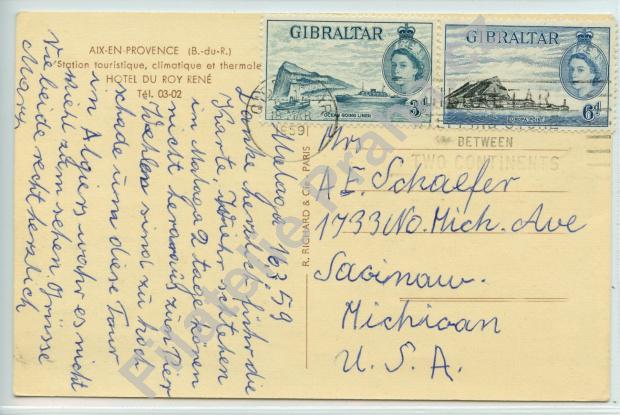 AIX-EN-PROVENCE (B.-du-R.)
Station touristique, climatique et thermale
HOTEL DU ROY RENÉ
Tél. 03-02
Malaga 16.3.59
Danke herzlich für die
Karte. Wir
in Malaga 2 Tage können
nicht heraus zu
Wellen sind zu hoch
schade um diese Tour
in Algiers wahr es nicht
zum sehen Grüsse
Vie beide recht herzlich
Mary
R. RICHARD & Cie, PARIS
GIBRALTAR
3d
OCEAN GOING LINER
GIBRALTAR
6d
18 MAR
1959
BETWEEN
TWO CONTINENTS
Mrs
A.E. Schaefer
1733 No. Mich. Ave
Saginaw.
Michigan
U.S.A.
Filatelie